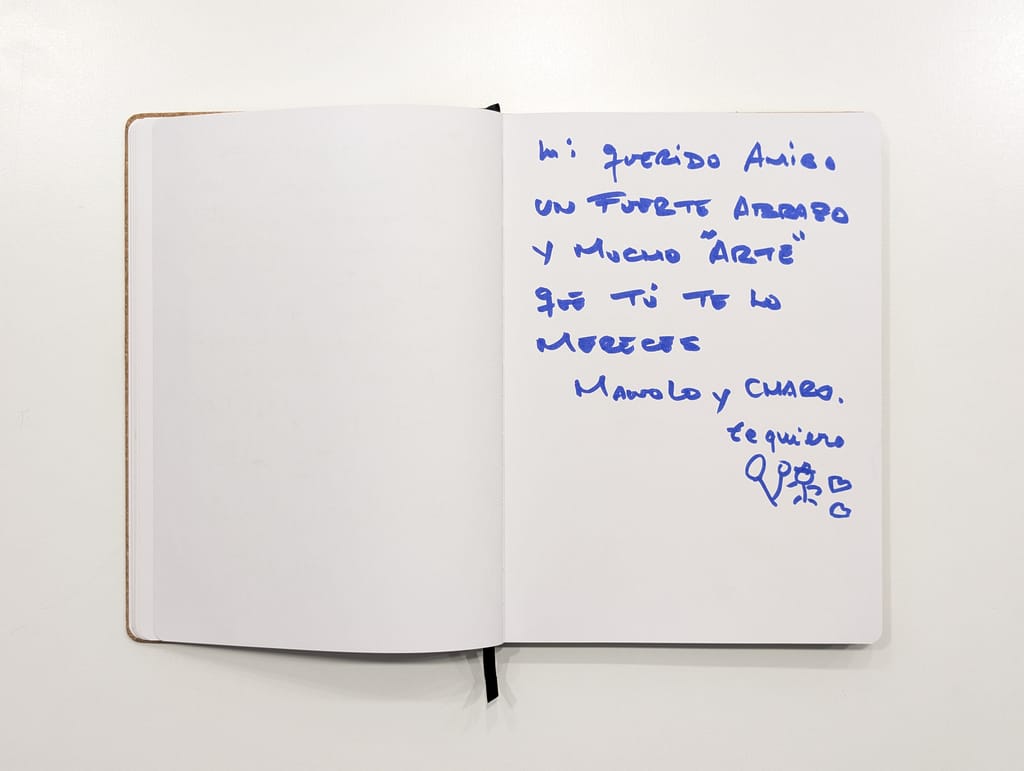 Mi QUERIDO AMIGO
UN FUERTE ABRAZO
Y MUCHO "ARTE"
QUE TÚ TE LO
MERECES
MANOLO y CHARO.
te quiero